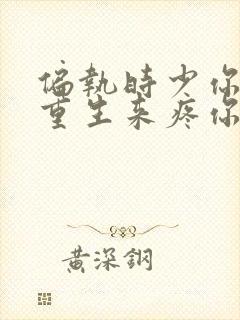 偏執時少你
重生来疼你
黄深鋼